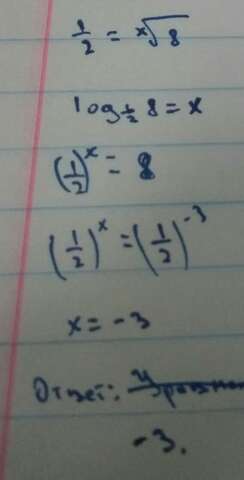 1/2 = ˣ√8
log₁/₂ 8 = x
(1/2)ˣ = 8
(1/2)ˣ = (1/2)⁻³
x = -3
Ответ:
-3.